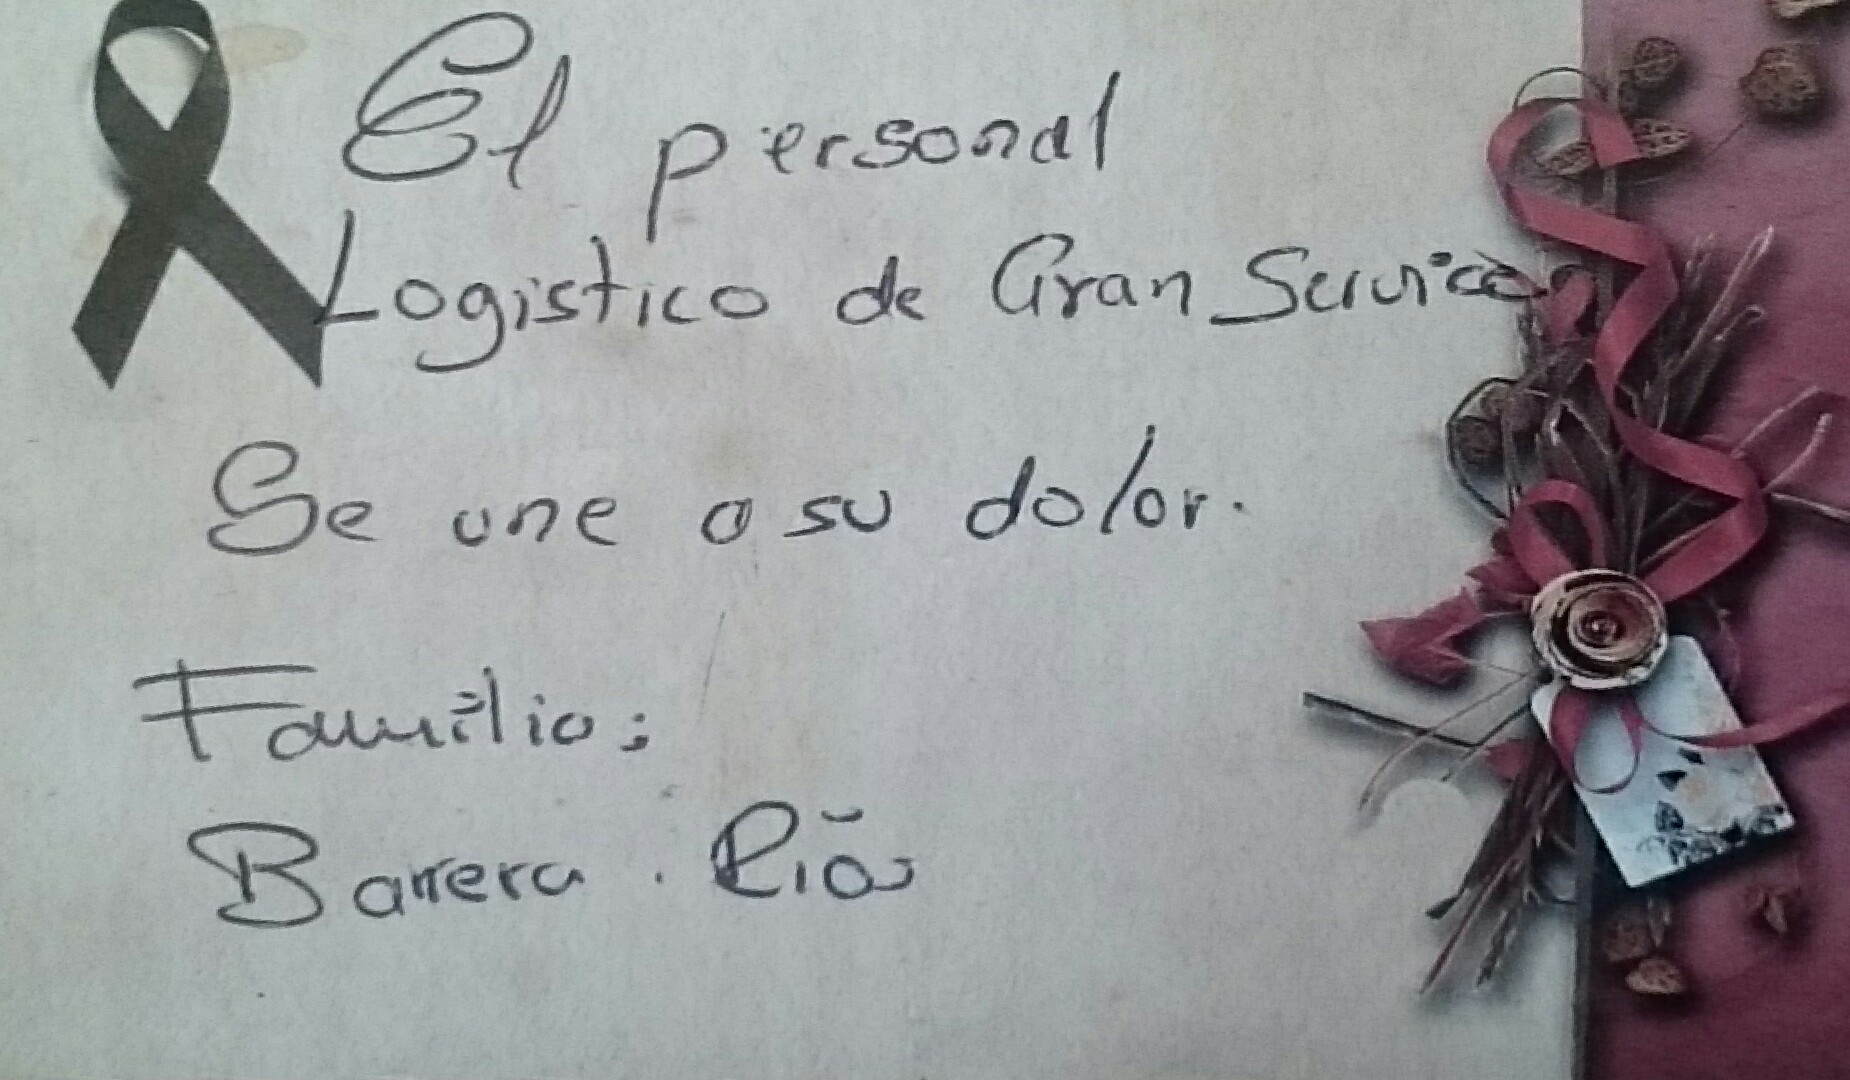 El personal
Logistico de Gran Services
Se une a su dolor.
Familia:
Barrera. Rios